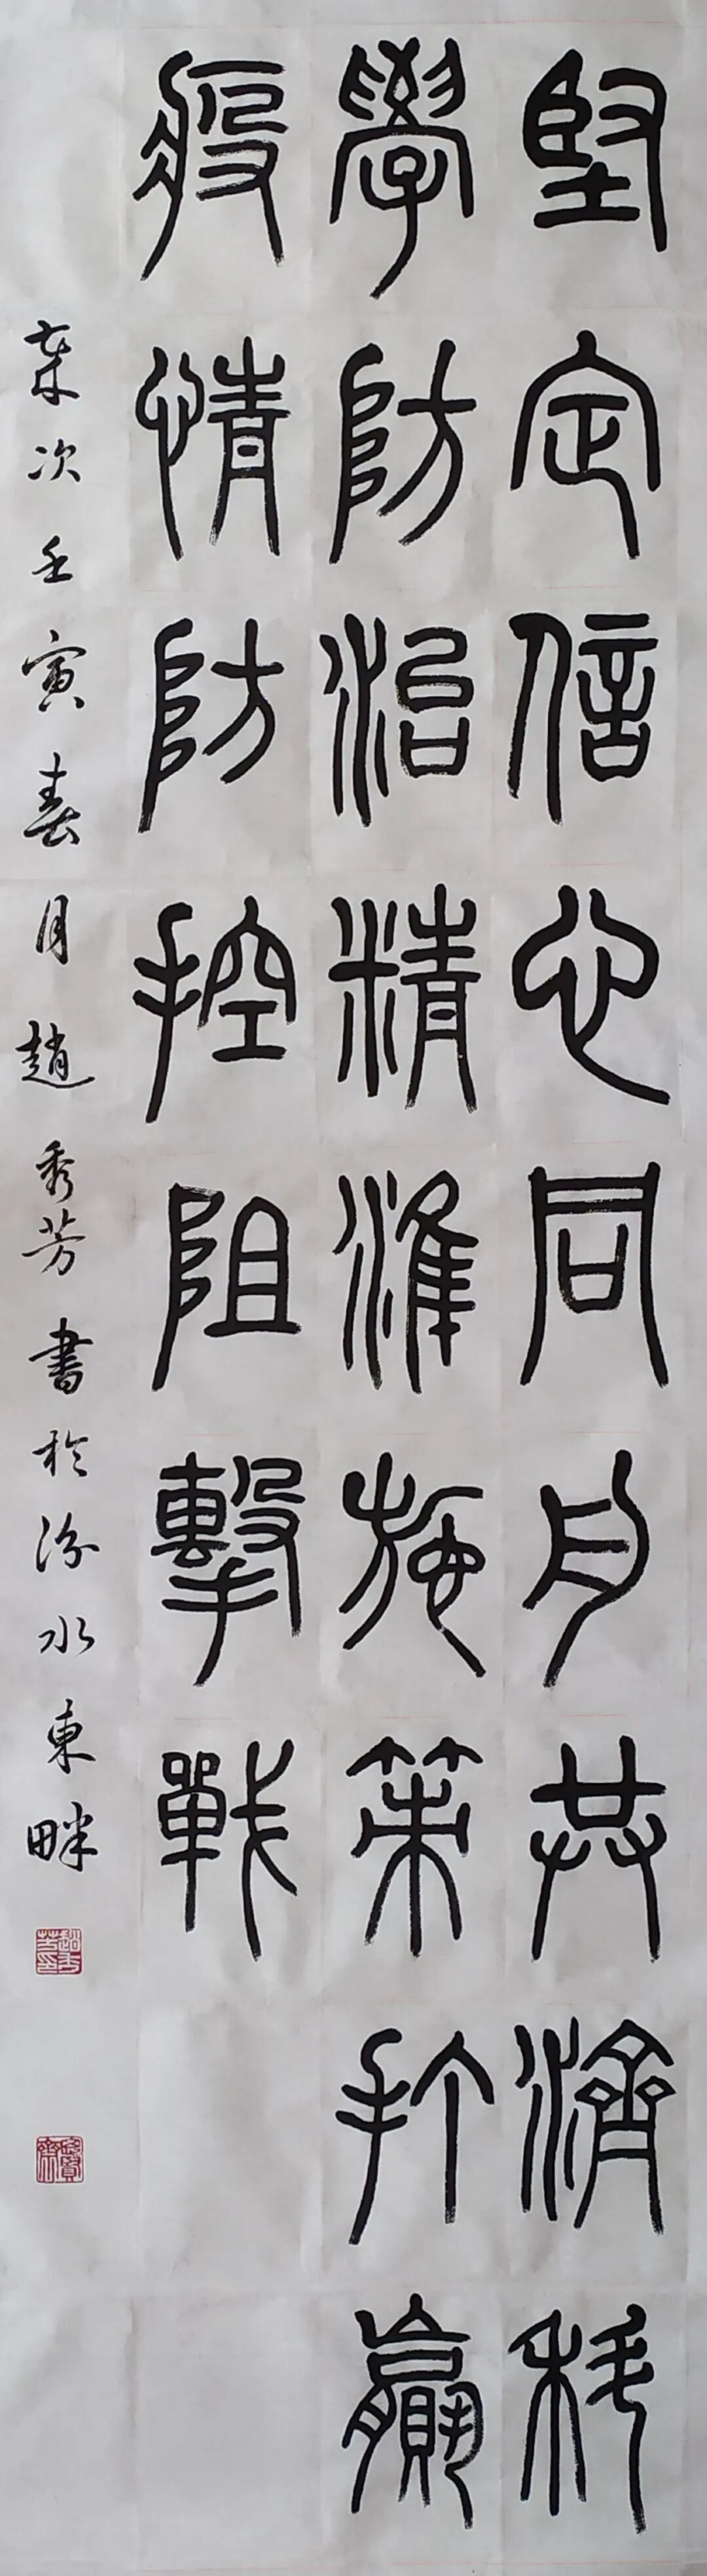 堅定信心同舟共濟科
學防治精準施策打贏
疫情防控阻擊戰
歲次壬寅春月趙秀芳書於汾水東畔